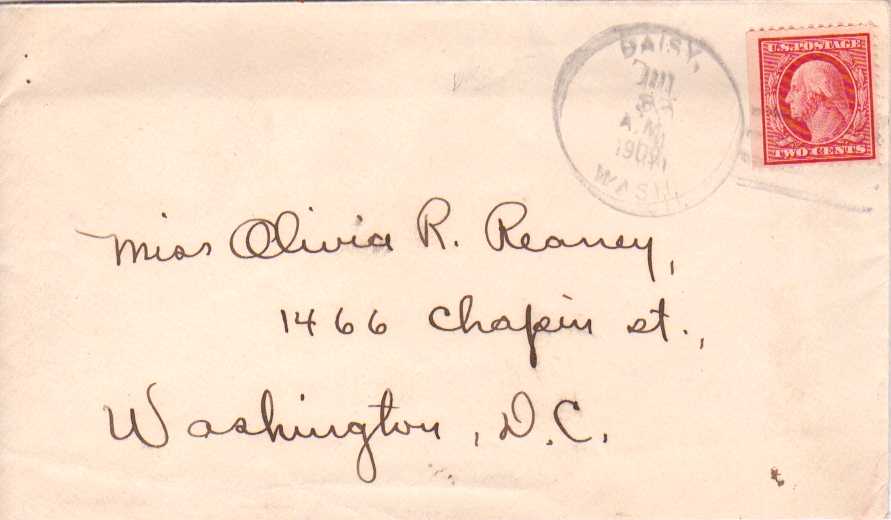 DAISY,
A.M.
WASH.
U.S. POSTAGE
TWO CENTS
Miss Olivia R. Reaney,
1466 Chapin st.,
Washington, D.C.